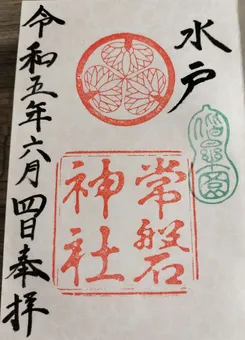 水戸
常磐
神社
令和五年六月四日奉拝